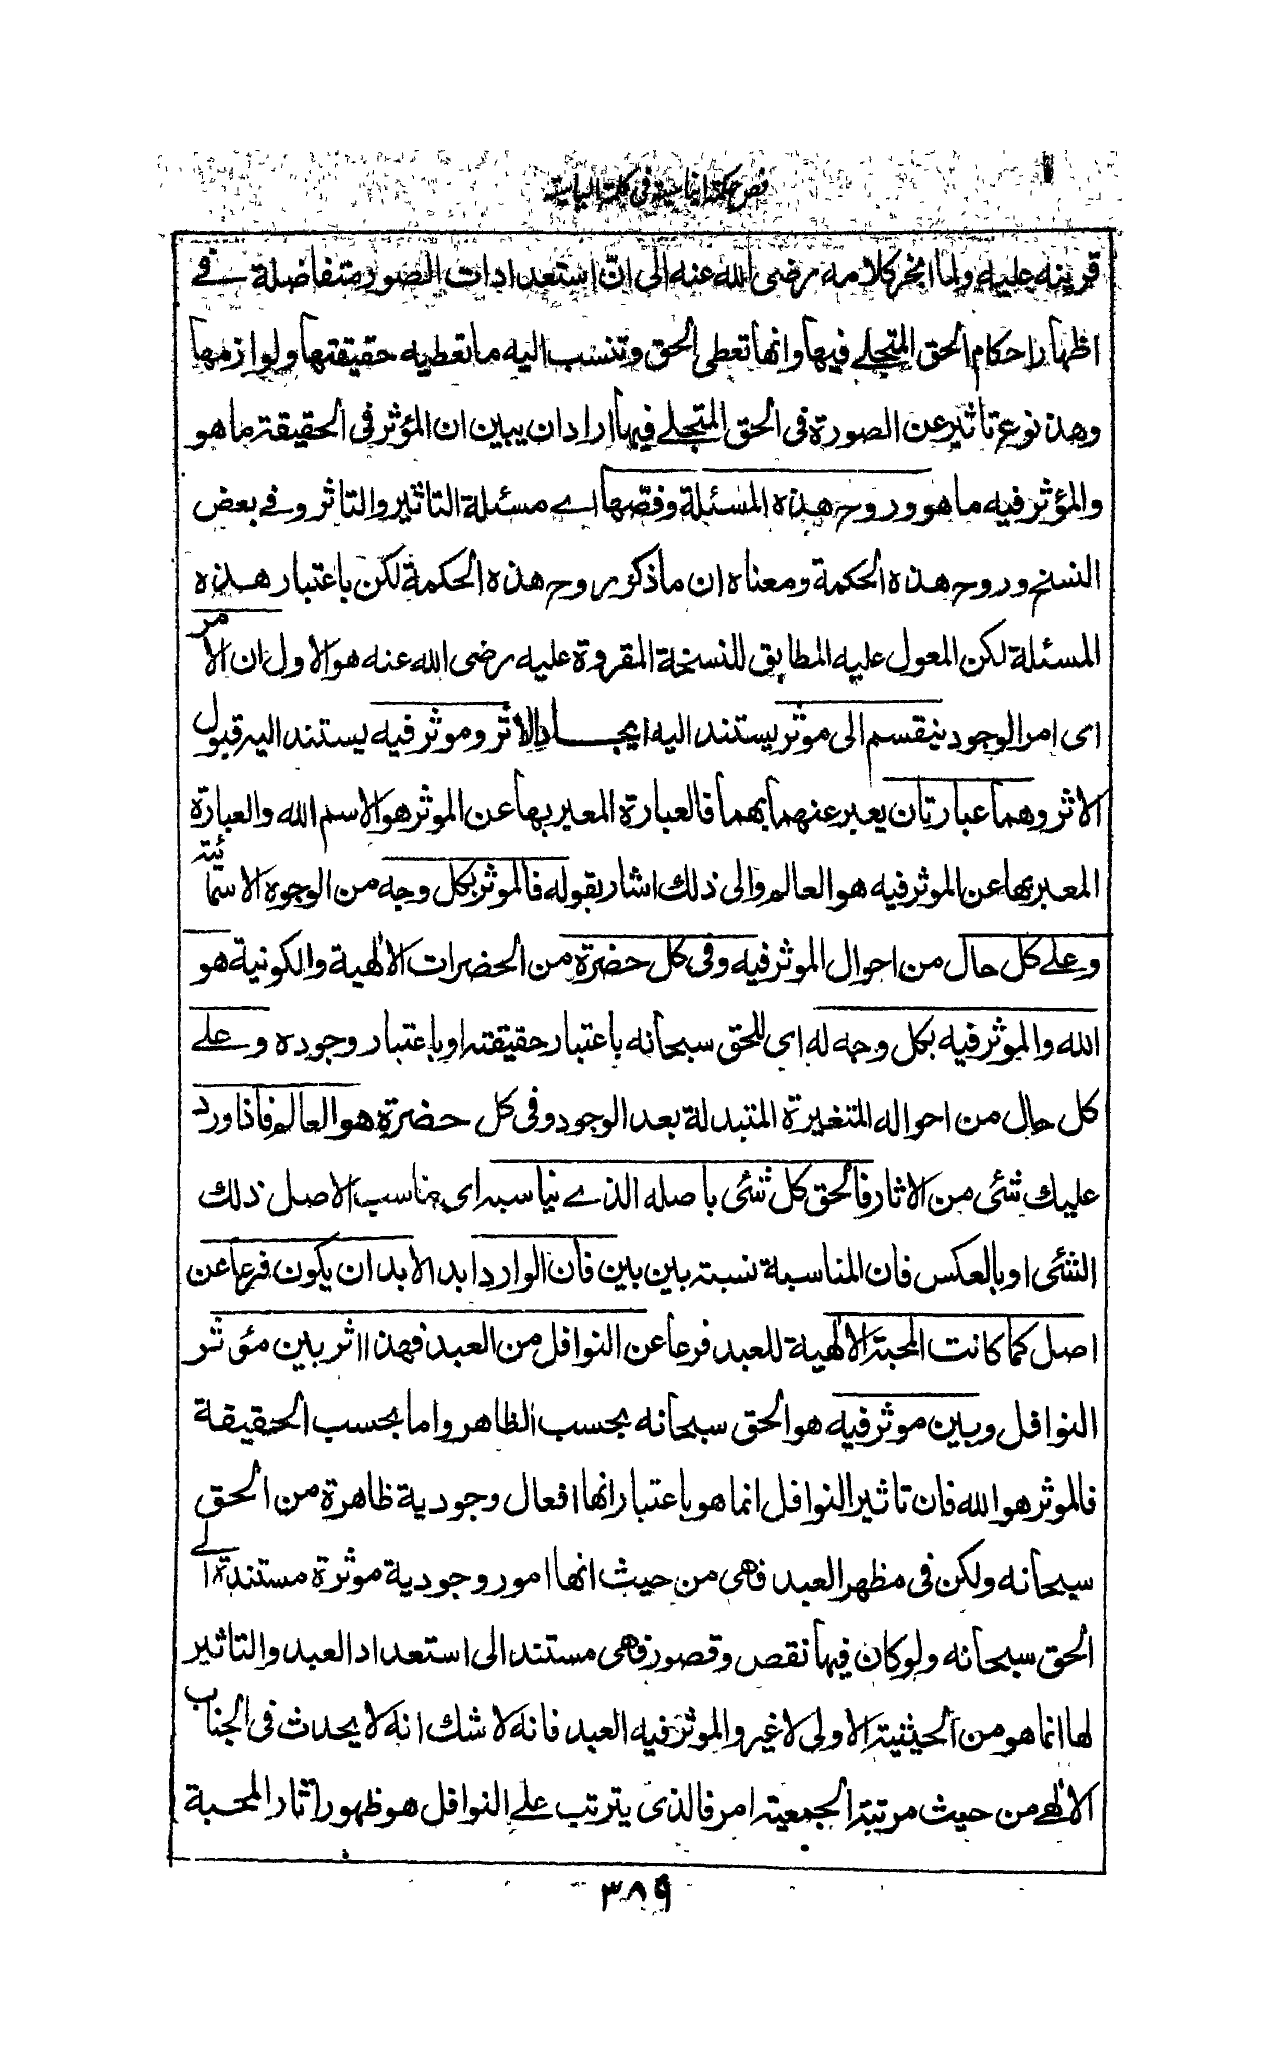 فص حكمة ايناسية في كلمة الياسية
قرينه عليه ولما انجر كلامه رضى الله عنه الى انّ استعدادات الصور متفاضلة في
اظهار احكام الحق المتجلے فيها وانها تعطى الحق وتنسب اليه ما تعطيه حقيقتها ولوازمها
وهذ نوع تاثير عن الصورة فى الحق المتجلے فيها اراد ان يبين ان المؤثر فى الحقيقة ما هو
والمؤثر فيه ما هو وروح هذه المسئلة وفصّها اے مسئلة التاثير والتاثر وفے بعض
النسخ وروح هذه الحكمة ومعناه ان ما ذكر روح هذه الحكمة لكن باعتبار هذه
المسئلة لكن المعول عليه المطابق للنسخة المقروة عليه رضى الله عنه هو الاول ان الامر
اى امر الوجود ينقسم الى موثر يستند اليه ايجاد الاثر وموثر فيه يستند اليه قبول
الاثر وهما عبارتان يعبر عنهما بهما فالعبارة المعبر بها عن الموثر هو الاسم الله والعبارة
المعبر بها عن الموثر فيه هو العالم والى ذلك اشار بقوله فالموثر بكل وجه من الوجوه الاسمائية
وعلے كل حال من احوال الموثر فيه وفى كل حضرة من الحضرات الالٰهية والكونية هو
الله والموثر فيه بكل وجه له اى للحق سبحانه باعتبار حقيقته او باعتبار وجوده وعلے
كل حال من احواله المتغيرة المتبدلة بعد الوجود وفى كل حضرة هو العالم فاذا ورد
عليك شئى من الاثار فالحق كل شئى باصله الذے يناسبه اى يناسب الاصل ذلك
الشئى او بالعكس فان المناسبة نسبته بين بين فان الوارد ابد الابد ان يكون فرعا عن
اصل كما كانت المحبة الالٰهية للعبد فرعا عن النوافل من العبد فهذا اثر بين مؤثر
النوافل وبين موثر فيه هو الحق سبحانه بحسب الظاهر واما بحسب الحقيقة
فالموثر هو الله فان تاثير النوافل انما هو باعتبار انها افعال وجودية ظاهرة من الحق
سبحانه ولكن فى مظهر العبد فهى من حيث انها امور وجودية موثرة مستندة الے
الحق سبحانه ولو كان فيها نقص وقصور فهى مستند الى استعداد العبد والتاثير
لها انما هو من الحيثية الاولى لا غير والموثر فيه العبد فانه لا شك انه لا يحدث فى الجناب
الالٰهے من حيث مرتبته الجمعية امر فالذى يترتب علے النوافل هو ظهور اثار المحبة
٣٨٩